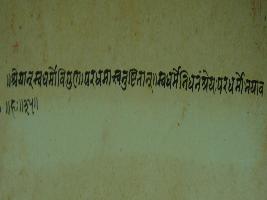 ॥श्रेयान्स्वधर्मो विगुणः॥परधर्मात्स्वनुष्ठितात्॥स्वधर्मे निधनं श्रेयः परधर्मो भयाव
हः॥३५॥